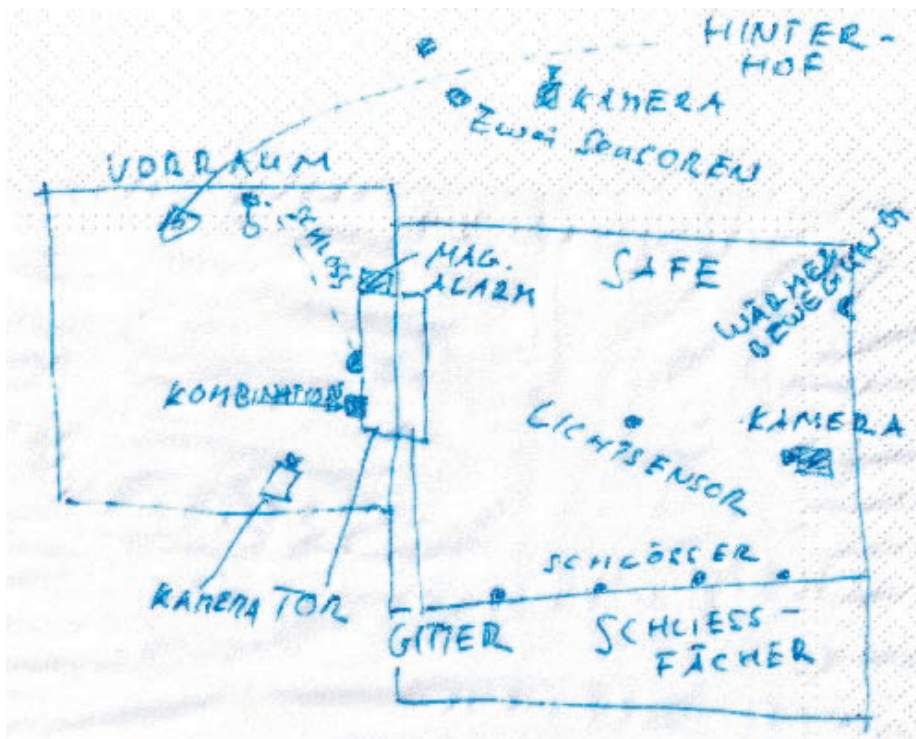 HINTER-
HOF
KAMERA
Zwei SENSOREN
VORRAUM
SCHLOSS
MAG.
ALARM
SAFE
WÄRME &
BEWEGUNG
KOMBINATION
LICHTSENSOR
KAMERA
SCHLÖSSER
KAMERA
TOR
GITTER
SCHLIESS-
FÄCHER